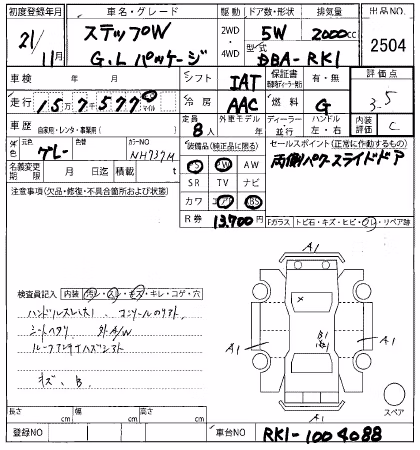 初度登録年月 車名・グレード 駆動 ドア数・形状 排気量 出品NO.
21/11月 ステップW G.Lパッケージ 2WD・4WD 5W 2000cc 2504
型式 DBA-RK1
車検 年 月 シフト IAT 保証書 有・無 評価点
走行 15万7577 マイル 冷房 AAC 燃料 G 3.5
車歴 自家用・レンタ・事業用( ) 定員 8人 外車モデル年 ディーラー・並行 ハンドル 左・右 内装評価 C
色 元色 グレー 色替 カラーNO NH737M 装備品(純正品に限る) セールスポイント(正常に作動するもの)
PS PW AW 両側パワースライドドア
名義変更期限 月 日迄 積載 t SR TV ナビ
注意事項(欠品・修復・不具合箇所および状態) カワ エアB ABS
R券 13,700円 Fガラス トビ石・キズ・ヒビ・ワレ・リペア跡
A1
検査員記入 内装 汚レ・スレ・キズ・キレ・コゲ・穴
ハンドルスレ(大)
シートヘタリ 外A/W
キズ、B
A1 A1
A1
スペア
長さ cm 幅 cm 高さ cm
登録NO 車台NO RK1-1004088